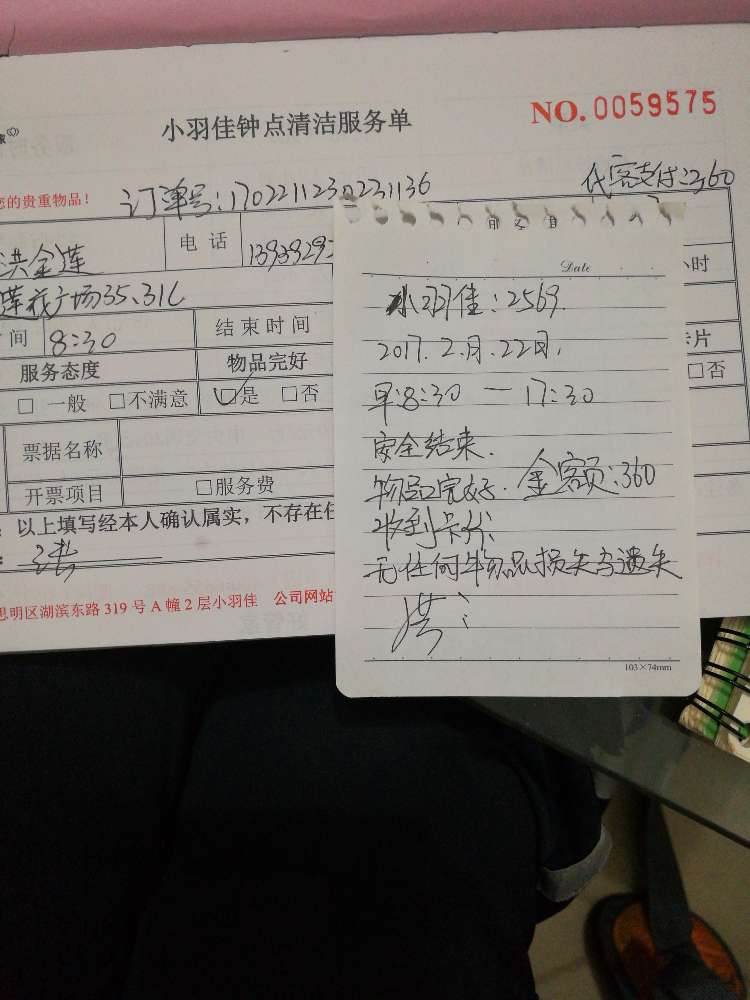 小羽佳钟点清洁服务单
NO.0059575
您的贵重物品！
订单号:1702211230231136
代客支付:360
洪金莲
电话
莲花广场35、31C
间 8:30
结束时间
小时
服务态度
物品完好
卡片
□ 一般 □不满意
□是 □否
□否
票据名称
开票项目
□服务费
以上填写经本人确认属实，不存在任
洪
思明区湖滨东路 319 号 A 幢 2 层小羽佳 公司网站
Date
小羽佳:2569.
2017.2.月.22日.
早:8:30 — 17:30
安全结束.
物品完好. 金额:360
收到卡片
无任何物品损失与遗失
洪:
103×74mm